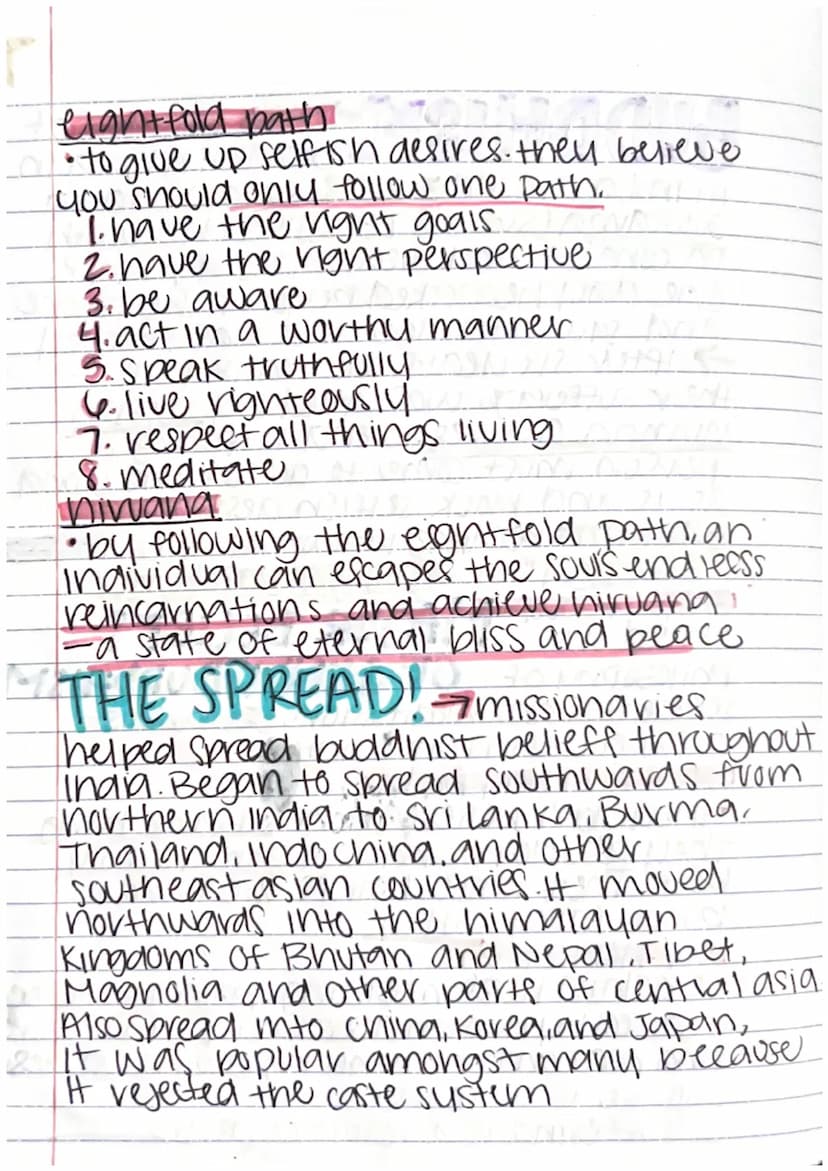 eightfold path
• to give up selfish desires. they believe
you should only follow one path.
1. have the right goals
2. have the right perspective
3. be aware
4. act in a worthy manner
5. speak truthfully
6. live righteously
7. respect all things living
8. meditate
nirvana
• by following the eightfold path, an
individual can escapes the soul's endlecss
reincarnations and achieve nirvana
— a state of eternal bliss and peace
THE SPREAD! → missionaries
helped spread buddhist belieff throughout
India. Began to spread southwards from
northern india to Sri Lanka, Burma,
Thailand, Indochina, and other
southeast asian countries. It moved
northwards into the himalayan
Kingdoms of Bhutan and Nepal, Tibet,
Magnolia and other parts of central asia
Also spread into china, Korea, and Japan,
It was popular amongst many because
it rejected the caste system